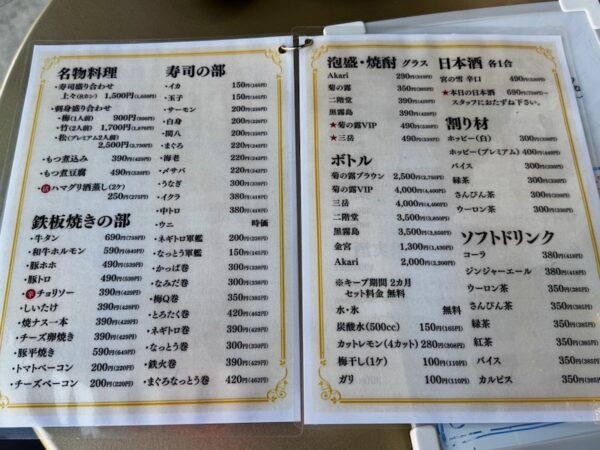 名物料理
・寿司盛り合わせ
上々(8カン) 1,500円(1,650円)
・刺身盛り合わせ
・梅(1人前) 900円(990円)
・竹(2人前) 1,700円(1,870円)
・松(プレミアム2人前)
2,500円(2,750円)
・もつ煮込み 390円(429円)
・もつ煮豆腐 490円(539円)
・ハマグリ酒蒸し(2ケ)
250円(275円)
鉄板焼きの部
・牛タン 690円(759円)
・和牛ホルモン 590円(649円)
・豚ホホ 490円(539円)
・豚トロ 490円(539円)
・辛チョリソー 390円(429円)
・しいたけ 390円(429円)
・焼ナス一本 390円(429円)
・チーズ卵焼き 390円(429円)
・豚平焼き 590円(649円)
・トマトベーコン 200円(220円)
・チーズベーコン 200円(220円)
寿司の部
・イカ 150円(165円)
・玉子 150円(165円)
・サーモン 200円(220円)
・白身 200円(220円)
・間八 200円(220円)
・まぐろ 220円(242円)
・海老 220円(242円)
・〆サバ 220円(242円)
・うなぎ 300円(330円)
・イクラ 380円(418円)
・中トロ 380円(418円)
・ウニ 時価
・ネギトロ軍艦 200円(220円)
・なっとう軍艦 150円(165円)
・かっぱ巻 300円(330円)
・なみだ巻 300円(330円)
・梅Q巻 350円(385円)
・とろたく巻 420円(462円)
・ネギトロ巻 390円(429円)
・なっとう巻 300円(330円)
・鉄火巻 390円(429円)
・まぐろなっとう巻 420円(462円)
泡盛・焼酎 グラス
Akari 290円(319円)
菊の露 350円(385円)
二階堂 390円(429円)
黒霧島 390円(429円)
★菊の露VIP 490円(539円)
★三岳 490円(539円)
ボトル
菊の露ブラウン 2,500円(2,750円)
菊の露VIP 4,000円(4,400円)
三岳 4,000円(4,400円)
二階堂 3,500円(3,850円)
黒霧島 3,500円(3,850円)
金宮 1,300円(1,430円)
Akari 2,000円(2,200円)
※キープ期間 2カ月
セット料金 無料
水・氷 無料
炭酸水(500cc) 150円(165円)
カットレモン(4カット) 280円(308円)
梅干し(1ケ) 100円(110円)
ガリ 100円(110円)
日本酒 各1合
宮の雪 辛口 490円(539円)
★本日の日本酒 690円(759円)〜
スタッフにおたずね下さい。
割り材
ホッピー(白) 300円(330円)
ホッピー(プレミアム) 400円(440円)
バイス 300円(330円)
緑茶 300円(330円)
さんぴん茶 300円(330円)
ウーロン茶 300円(330円)
ソフトドリンク
コーラ 380円(418円)
ジンジャーエール 380円(418円)
ウーロン茶 350円(385円)
さんぴん茶 350円(385円)
緑茶 350円(385円)
紅茶 350円(385円)
バイス 350円(385円)
カルピス 350円(385円)